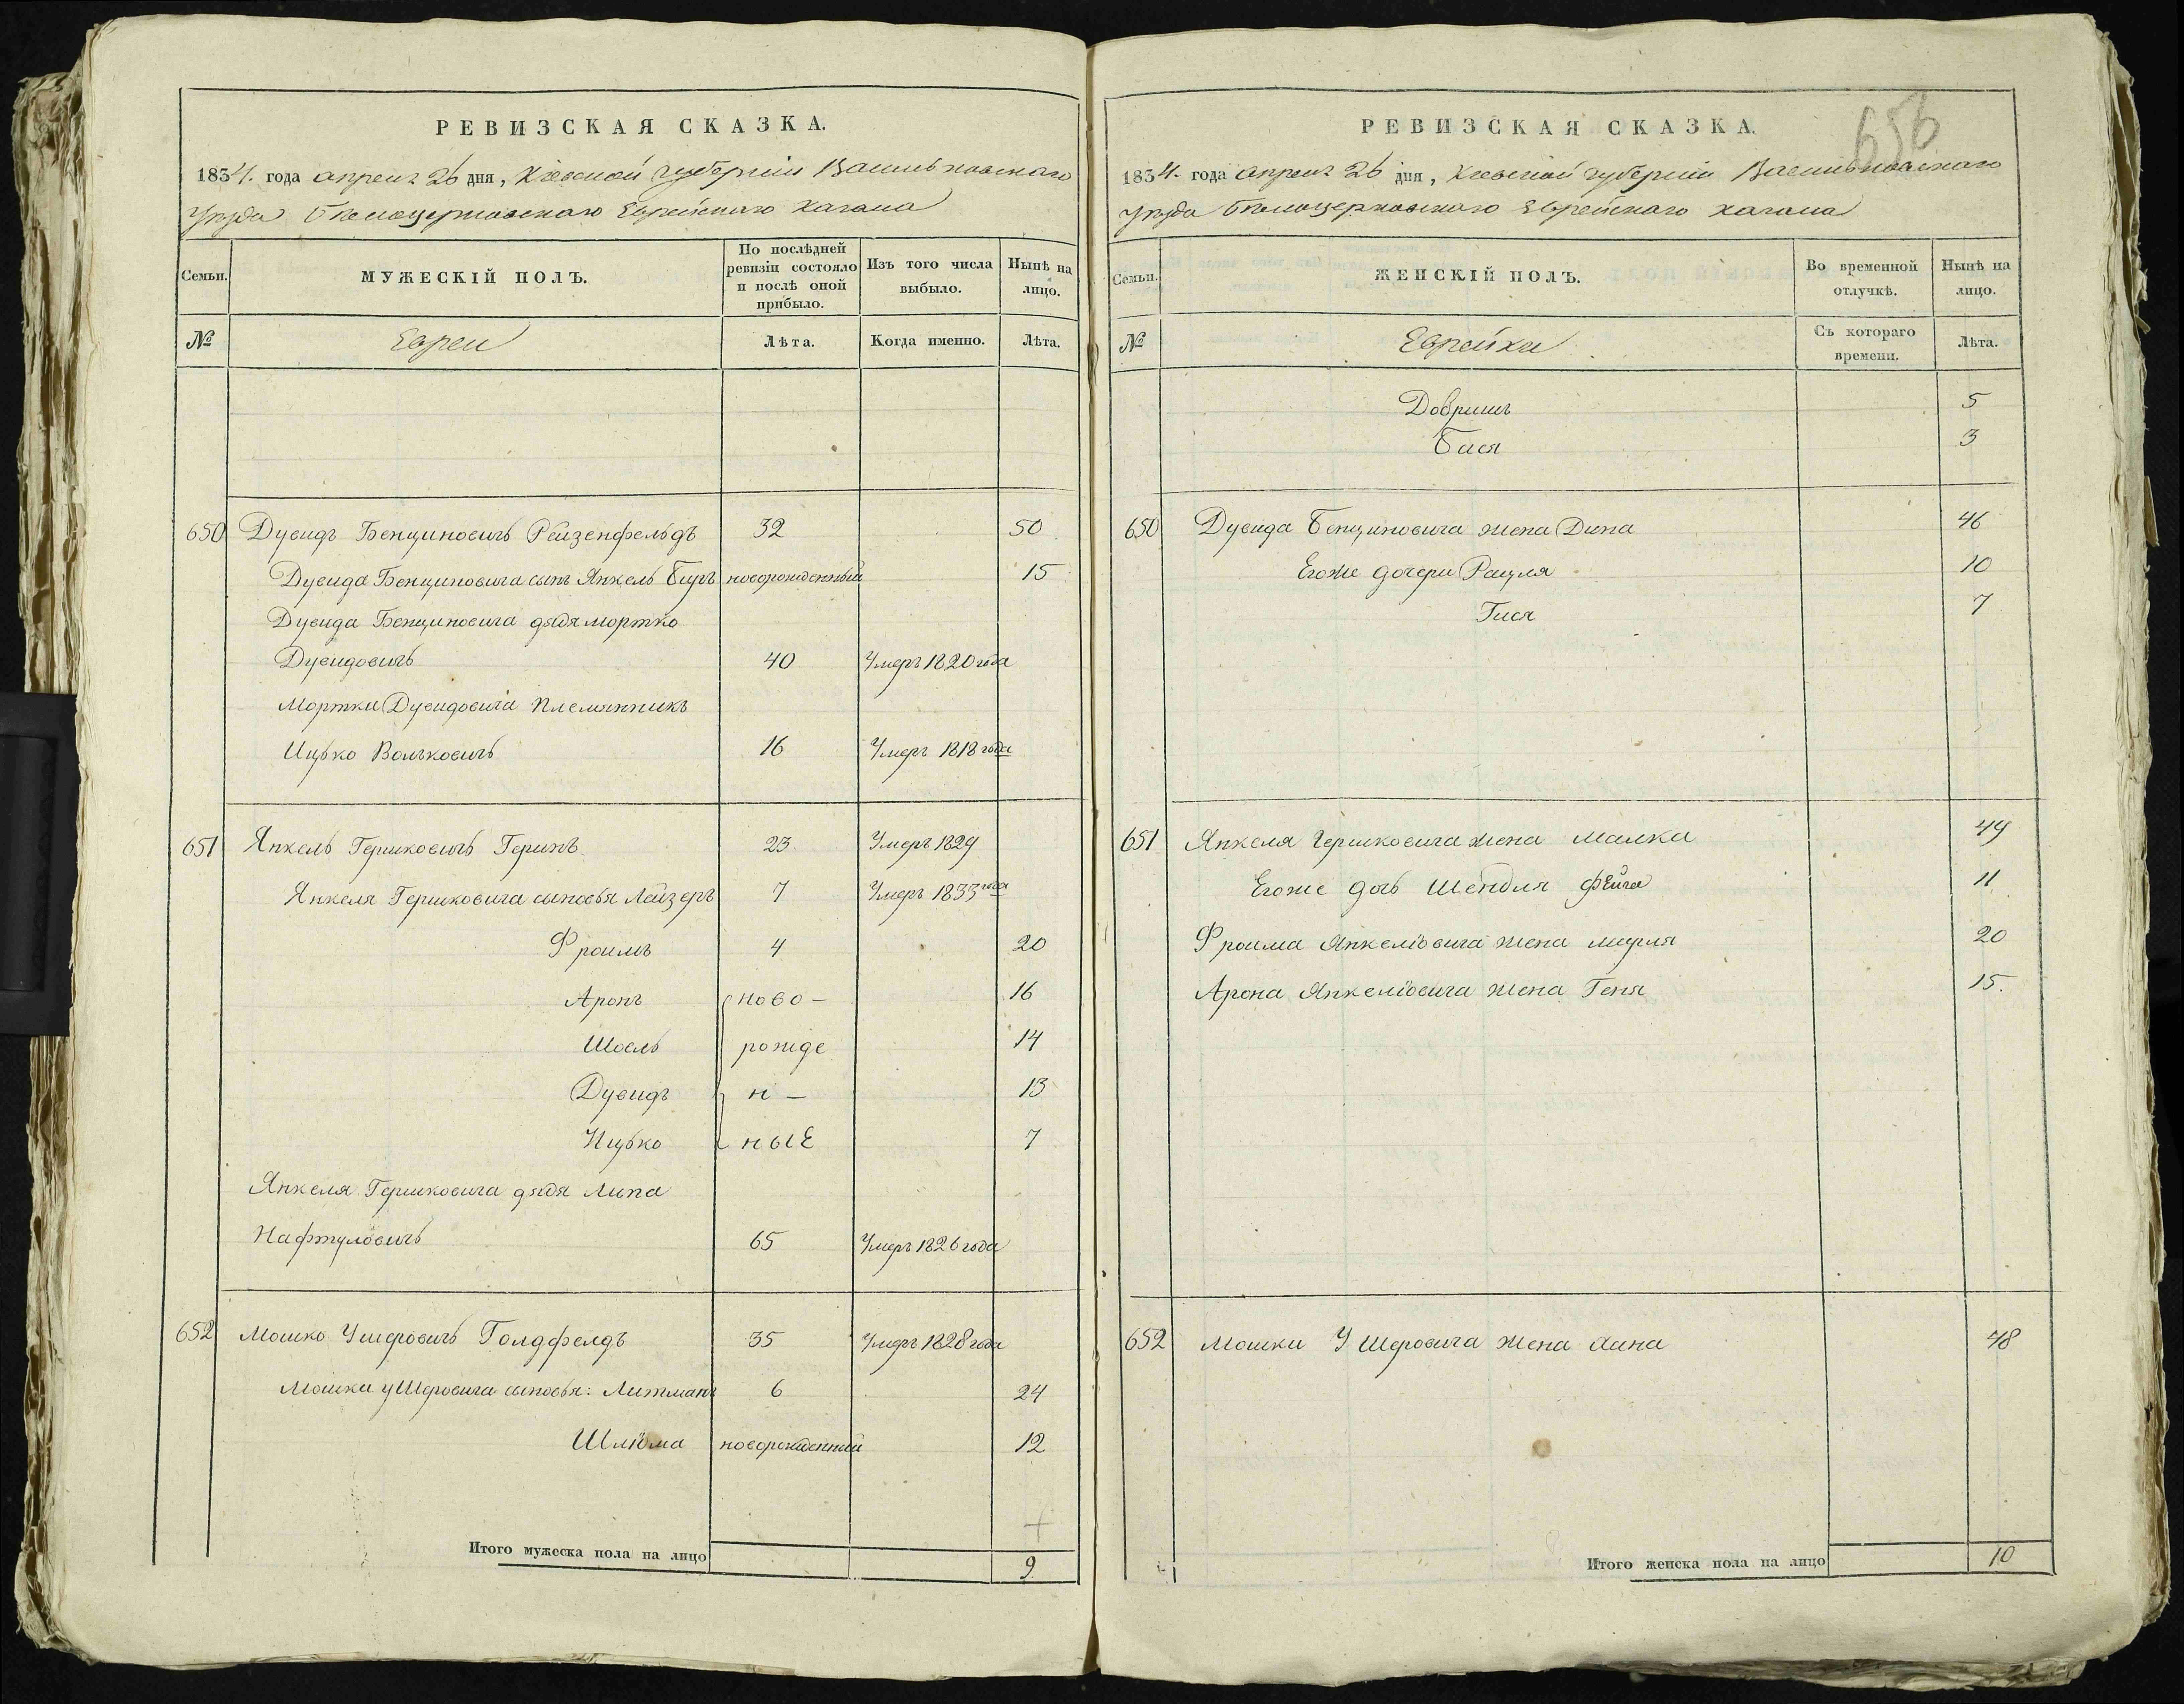 РЕВИЗСКАЯ СКАЗКА.
1834. года апреля 26 дня, Кіевской губерніи Васильковскаго
уѣзда Бѣлоцерковскаго Еврейскаго кагала
Семьи. МУЖЕСКІЙ ПОЛЪ. По послѣдней ревизіи состояло и послѣ оной прибыло. Изъ того числа выбыло. Нынѣ на лицо.
№ Евреи Лѣта. Когда именно. Лѣта.
650 Дувидъ Бенциновичъ Рейзенфельдъ 32 50
Дувида Бенциновича сынъ Янкель Беръ новорожденный 15
Дувида Бенциновича дядя Мортко
Дувидовичъ 40 Умеръ 1820 года
Мортки Дувидовича племянникъ
Ицько Вольковичъ 16 Умеръ 1818 года
651 Янкель Гершковичъ Геринъ 23 Умеръ 1829
Янкеля Гершковича сыновья Лейзеръ 7 Умеръ 1833 года
Фроимъ 4 20
Аронъ ново- 16
Шоель рожде 14
Дувидъ н- 13
Ицько ные 7
Янкеля Гершковича дядя Липа
Нафтуловичъ 65 Умеръ 1826 года
652 Мошко Ушеровичъ Голдфелдъ 35 Умеръ 1828 года
Мошки Ушеровича сыновья: Литманъ 6 24
Шлйома новорожденный 12
Итого мужеска пола на лицо 9
656
РЕВИЗСКАЯ СКАЗКА.
1834. года апреля 26 дня, Кіевской губерніи Васильковскаго
уѣзда Бѣлоцерковскаго Еврейскаго кагала
Семьи. ЖЕНСКІЙ ПОЛЪ. Во временной отлучкѣ. Нынѣ на лицо.
№ Еврейки Съ котораго времени. Лѣта.
Добришъ 5
Бася 3
650 Дувида Бенциновича жена Дина 46
Егоже дочери Рацля 10
Гися 7
651 Янкеля Гершковича жена Малка 49
Егоже дочь Шейндля Фейга 11
Фроима Янкеліовича жена Мирля 20
Арона Янкеліовича жена Геня 15.
652 Мошки Ушеровича жена Хана 48
Итого женска пола на лицо 10